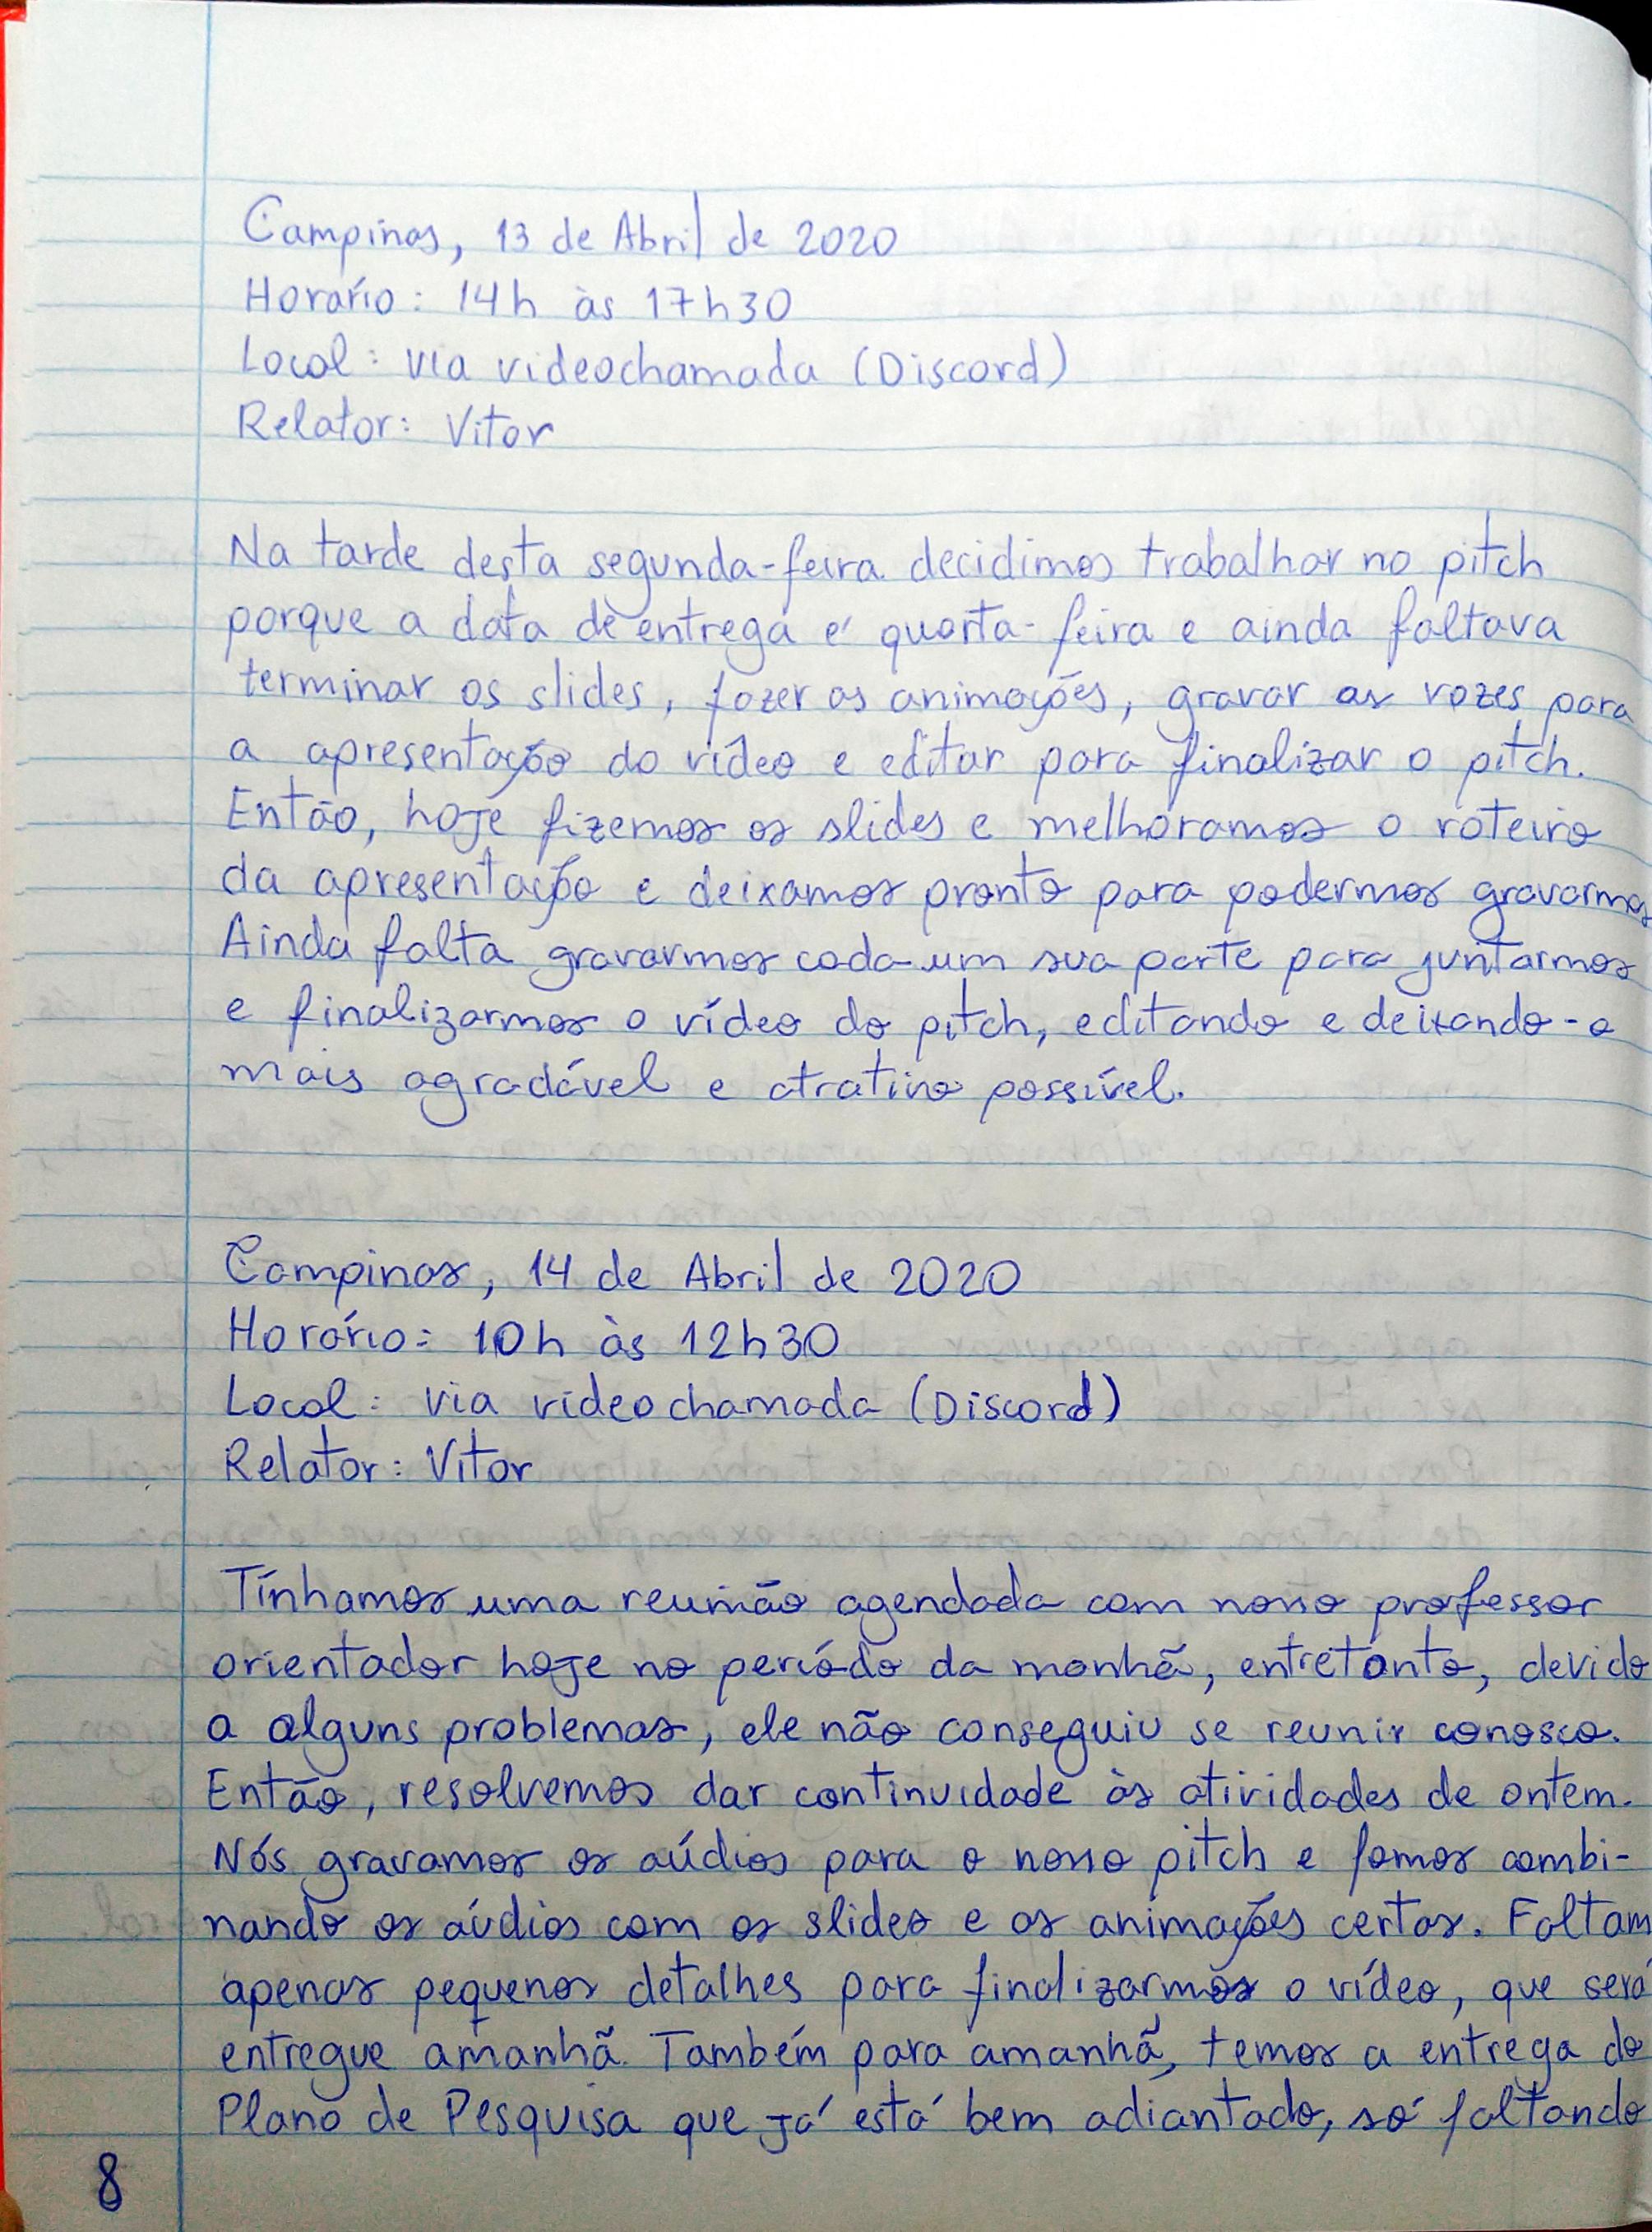 Campinas, 13 de Abril de 2020
Horário: 14h às 17h30
Local: via videochamada (Discord)
Relator: Vitor
Na tarde desta segunda-feira decidimos trabalhar no pitch
porque a data de entrega é quarta-feira e ainda faltava
terminar os slides, fazer as animações, gravar as vozes para
a apresentação do vídeo e editar para finalizar o pitch.
Então, hoje fizemos os slides e melhoramos o roteiro
da apresentação e deixamos pronto para podermos gravarmos
Ainda falta gravarmos cada um sua parte para juntarmos
e finalizarmos o vídeo do pitch, editando e deixando-o
mais agradável e atrativo possível.
Campinas, 14 de Abril de 2020
Horário: 10h às 12h30
Local: via videochamada (Discord)
Relator: Vitor
Tínhamos uma reunião agendada com nosso professor
orientador hoje no período da manhã, entretanto, devido
a alguns problemas, ele não conseguiu se reunir conosco.
Então, resolvemos dar continuidade às atividades de ontem.
Nós gravamos os aúdios para o nosso pitch e fomos combi-
nando os aúdios com os slides e as animações certas. Faltam
apenas pequenos detalhes para finalizarmos o vídeo, que será
entregue amanhã. Também para amanhã, temos a entrega do
Plano de Pesquisa que já está bem adiantado, só faltando
8